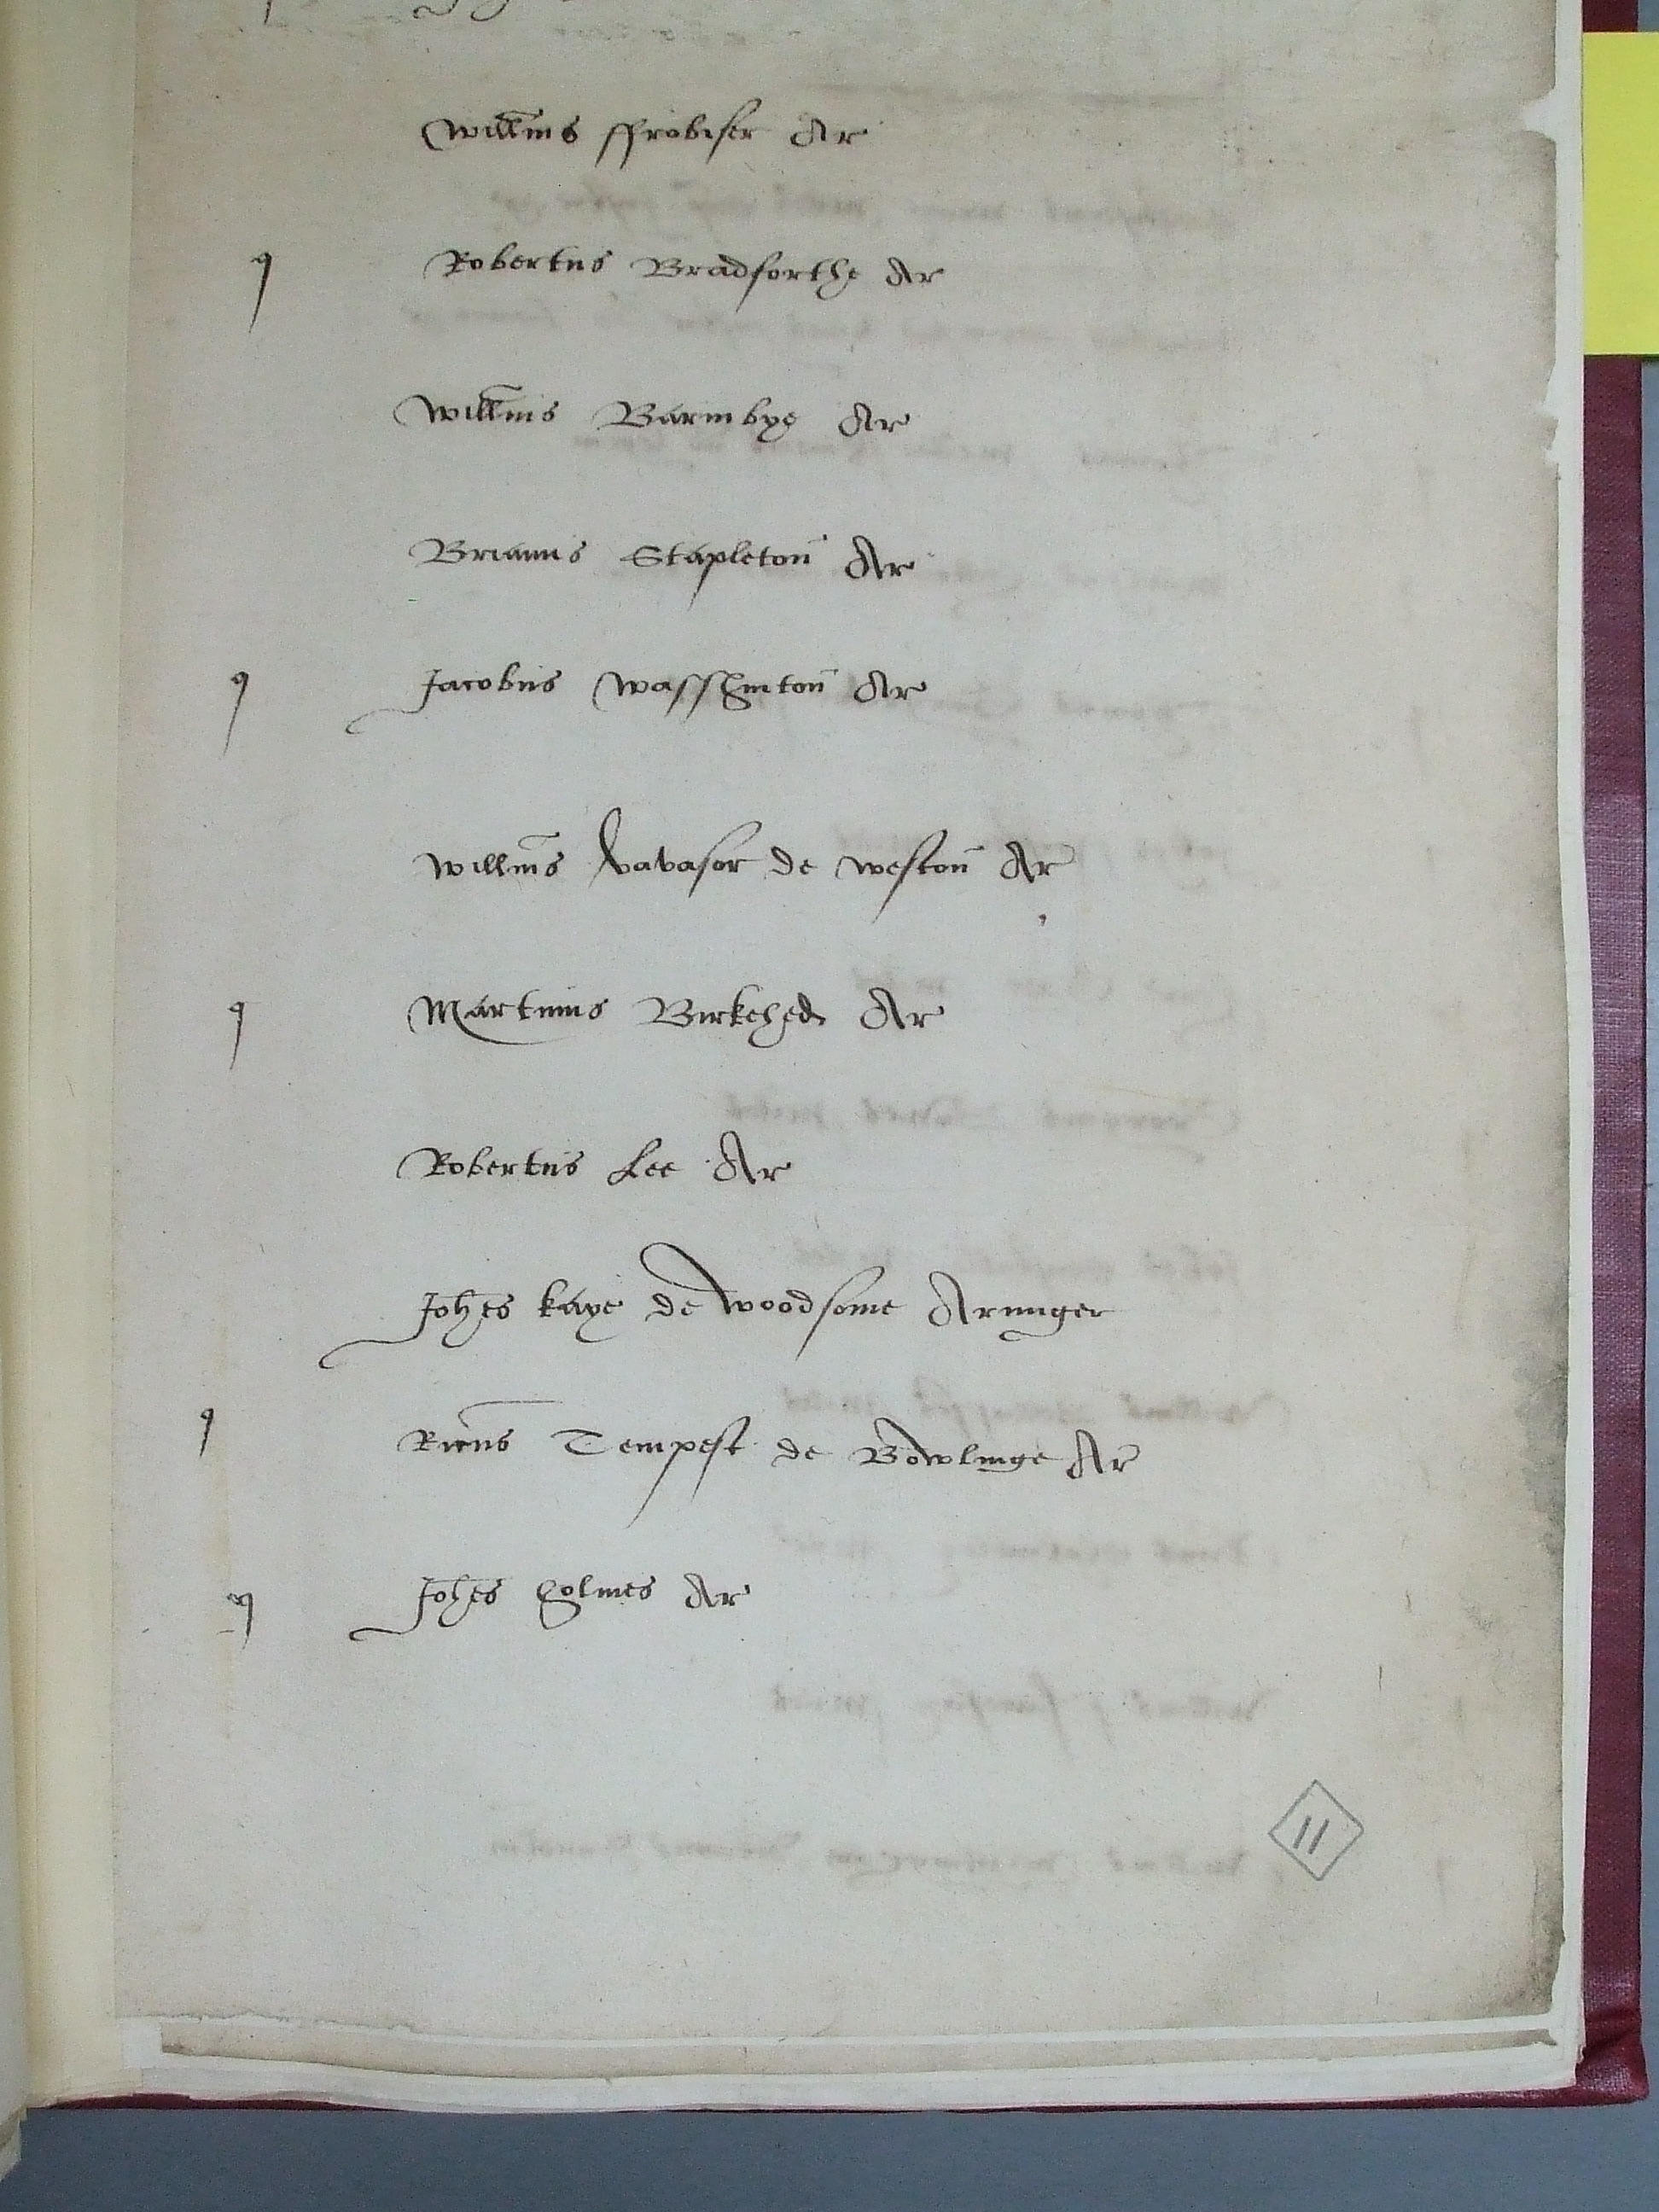 Willms ffrobiser Ar
q Robertus Bradforthe Ar
Willms Barmbye Ar
Brianus Stapleton Ar
q Jacobus Wasshinton Ar
Willms Vavasor de Weston Ar
q Martinus Birkehed Ar
Robertus Lee Ar
Johes kaye de Woodsome Armiger
q Ricus Tempest de Bowlinge Ar
q Johes holmes Ar
11